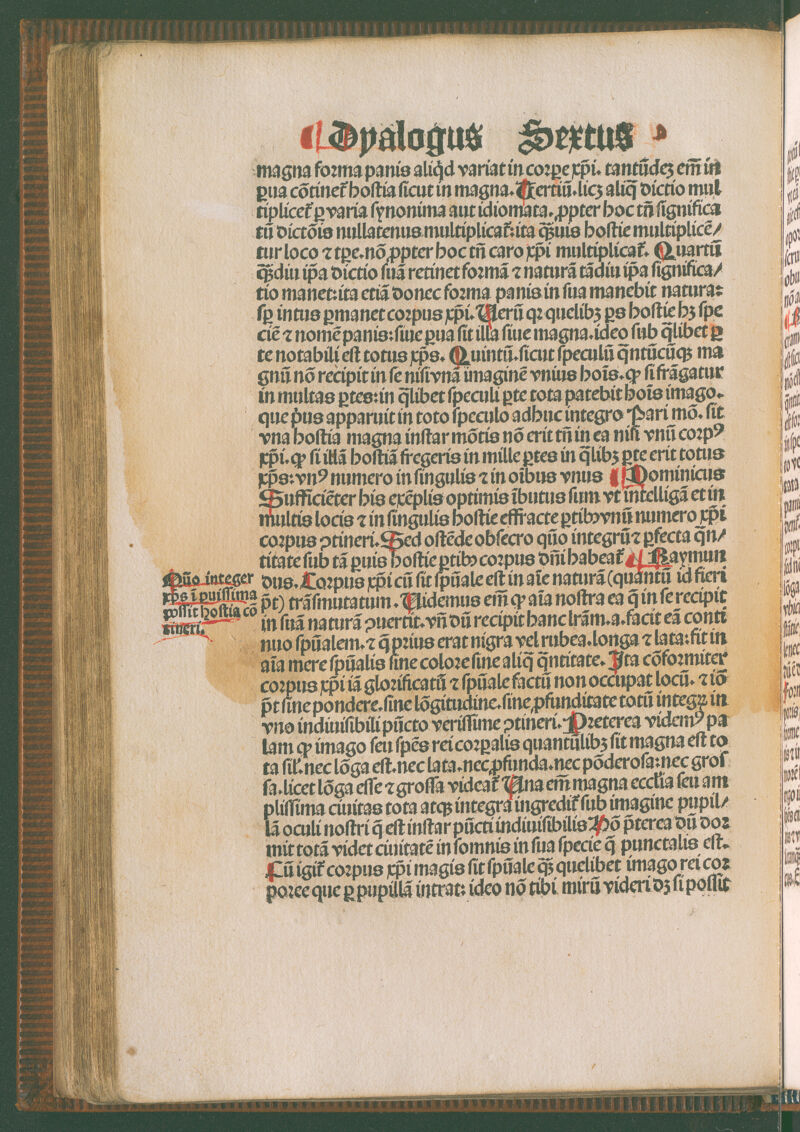 ¶ Dyalogus Sextus
magna foꝛma panis aliq̇d variat in coꝛꝑe xp̄i. tantūdeꝫ em̄ in
ꝑua cōtinet᷑ hoſtia ſicut in magna. Tertiū. licꝫ aliq̄ dictio mul
tiplicet᷑ ꝑ varia ſynonima aut idiomata. ꝓpter hoc tn̄ ſignifica
tū dictōis nullatenus multiplicat᷑: ita q̄ꝫuis hoſtie multiplicē/
tur loco ⁊ tꝑe. nō ꝓpter hoc tn̄ caro xp̄i multiplicat᷑. Quartū
q̄ꝫdiu ip̄a dictio ſuā retinet foꝛmā ⁊ naturā tādiu ip̄a ſignifica/
tio manet: ita etiā donec foꝛma panis in ſua manebit natura:
ſꝑ intus ꝑmanet coꝛpus xp̄i. Uerū qꝛ quelibꝫ ꝑs hoſtie hꝫ ſpe
ciē ⁊ nomē panis: ſiue ꝑua ſit illa ſiue magna. ideo ſub q̄libet ꝑ
te notabili eſt totus xp̄s. Quintū. ſicut ſpeculū q̄ntūcūqꝫ ma
gnū nō recipit in ſe niſi vnā imaginē vnius hoīs. ꝙ ſi frāgatur
in multas ꝑtes: in q̄libet ſpeculi ꝑte tota patebit hoīs imago.
que pꝰus apparuit in toto ſpeculo adhuc integro Pari mō. ſit
vna hoſtia magna inſtar mōtis nō erit tn̄ in ea niſi vnū coꝛpꝰ
xp̄i. ꝙ ſi illā hoſtiā fregeris in mille ꝑtes in q̄libꝫ ꝑte erit totus
xp̄s: vnꝰ numero in ſingulis ⁊ in oībus vnus ¶ Dominicus
Sufficiēter his exēplis optimis ībutus ſum vt intelligā et in
multis locis ⁊ in ſingulis hoſtie effracte ꝑtibꝰ vnū numero xp̄i
coꝛpus ꝯtineri. Sed oſtēde obſecro quō integrū ⁊ ꝑfecta q̄n/
titate ſub tā ꝑuis hoſtie ꝑtibꝰ coꝛpus dn̄i habeat᷑ ¶ Raymun
dus. Coꝛpus xp̄i cū ſit ſpūale eſt in aīe naturā (quantū id fieri
p̄t) trāſmutatum. Uidemus em̄ ꝙ aīa noſtra ea q̄ in ſe recipit
in ſuā naturā ꝯuertit. vn̄ dū recipit hanc lrām. a. facit eā conti
nuo ſpūalem. ⁊ q̄ pꝛius erat nigra vel rubea. longa ⁊ lata: fit in
aīa mere ſpūalis ſine coloꝛe ſine aliq̄ q̄ntitate. Ita cōfoꝛmiter
coꝛpus xp̄i iā gloꝛificatū ⁊ ſpūale factū non occupat locū. ⁊ iō
p̄t ſine pondere. ſine lōgitudine. ſine ꝓfunditate totū integꝝ in
vno indiuiſibili pūcto veriſſime ꝯtineri. Pꝛeterea videmꝰ pa
lam ꝙ imago ſeu ſpēs rei coꝛꝑalis quantūlibꝫ ſit magna eſt to
ta ſil᷑. nec lōga eſt. nec lata. nec ꝓfunda. nec pōderoſa: nec groſ
ſa. licet lōga eſſe ⁊ groſſa videat᷑ Una em̄ magna ecclīa ſeu am
pliſſima ciuitas tota atqꝫ integra ingredit᷑ ſub imagine pupil/
lā oculi noſtri q̄ eſt inſtar pūcti indiuiſibilis Nō p̄terea dū doꝛ
mit totā videt ciuitatē in ſomnis in ſua ſpecie q̄ punctalis eſt.
Cū igit᷑ coꝛpus xp̄i magis ſit ſpūale q̄ꝫ quelibet imago rei coꝛ
poꝛee que ꝑ pupillā intrat: ideo nō tibi mirū videri dꝫ ſi poſſit
Quō integer
xp̄s ī ꝑuiſſima
poſſit hoſtia cō
tineri.